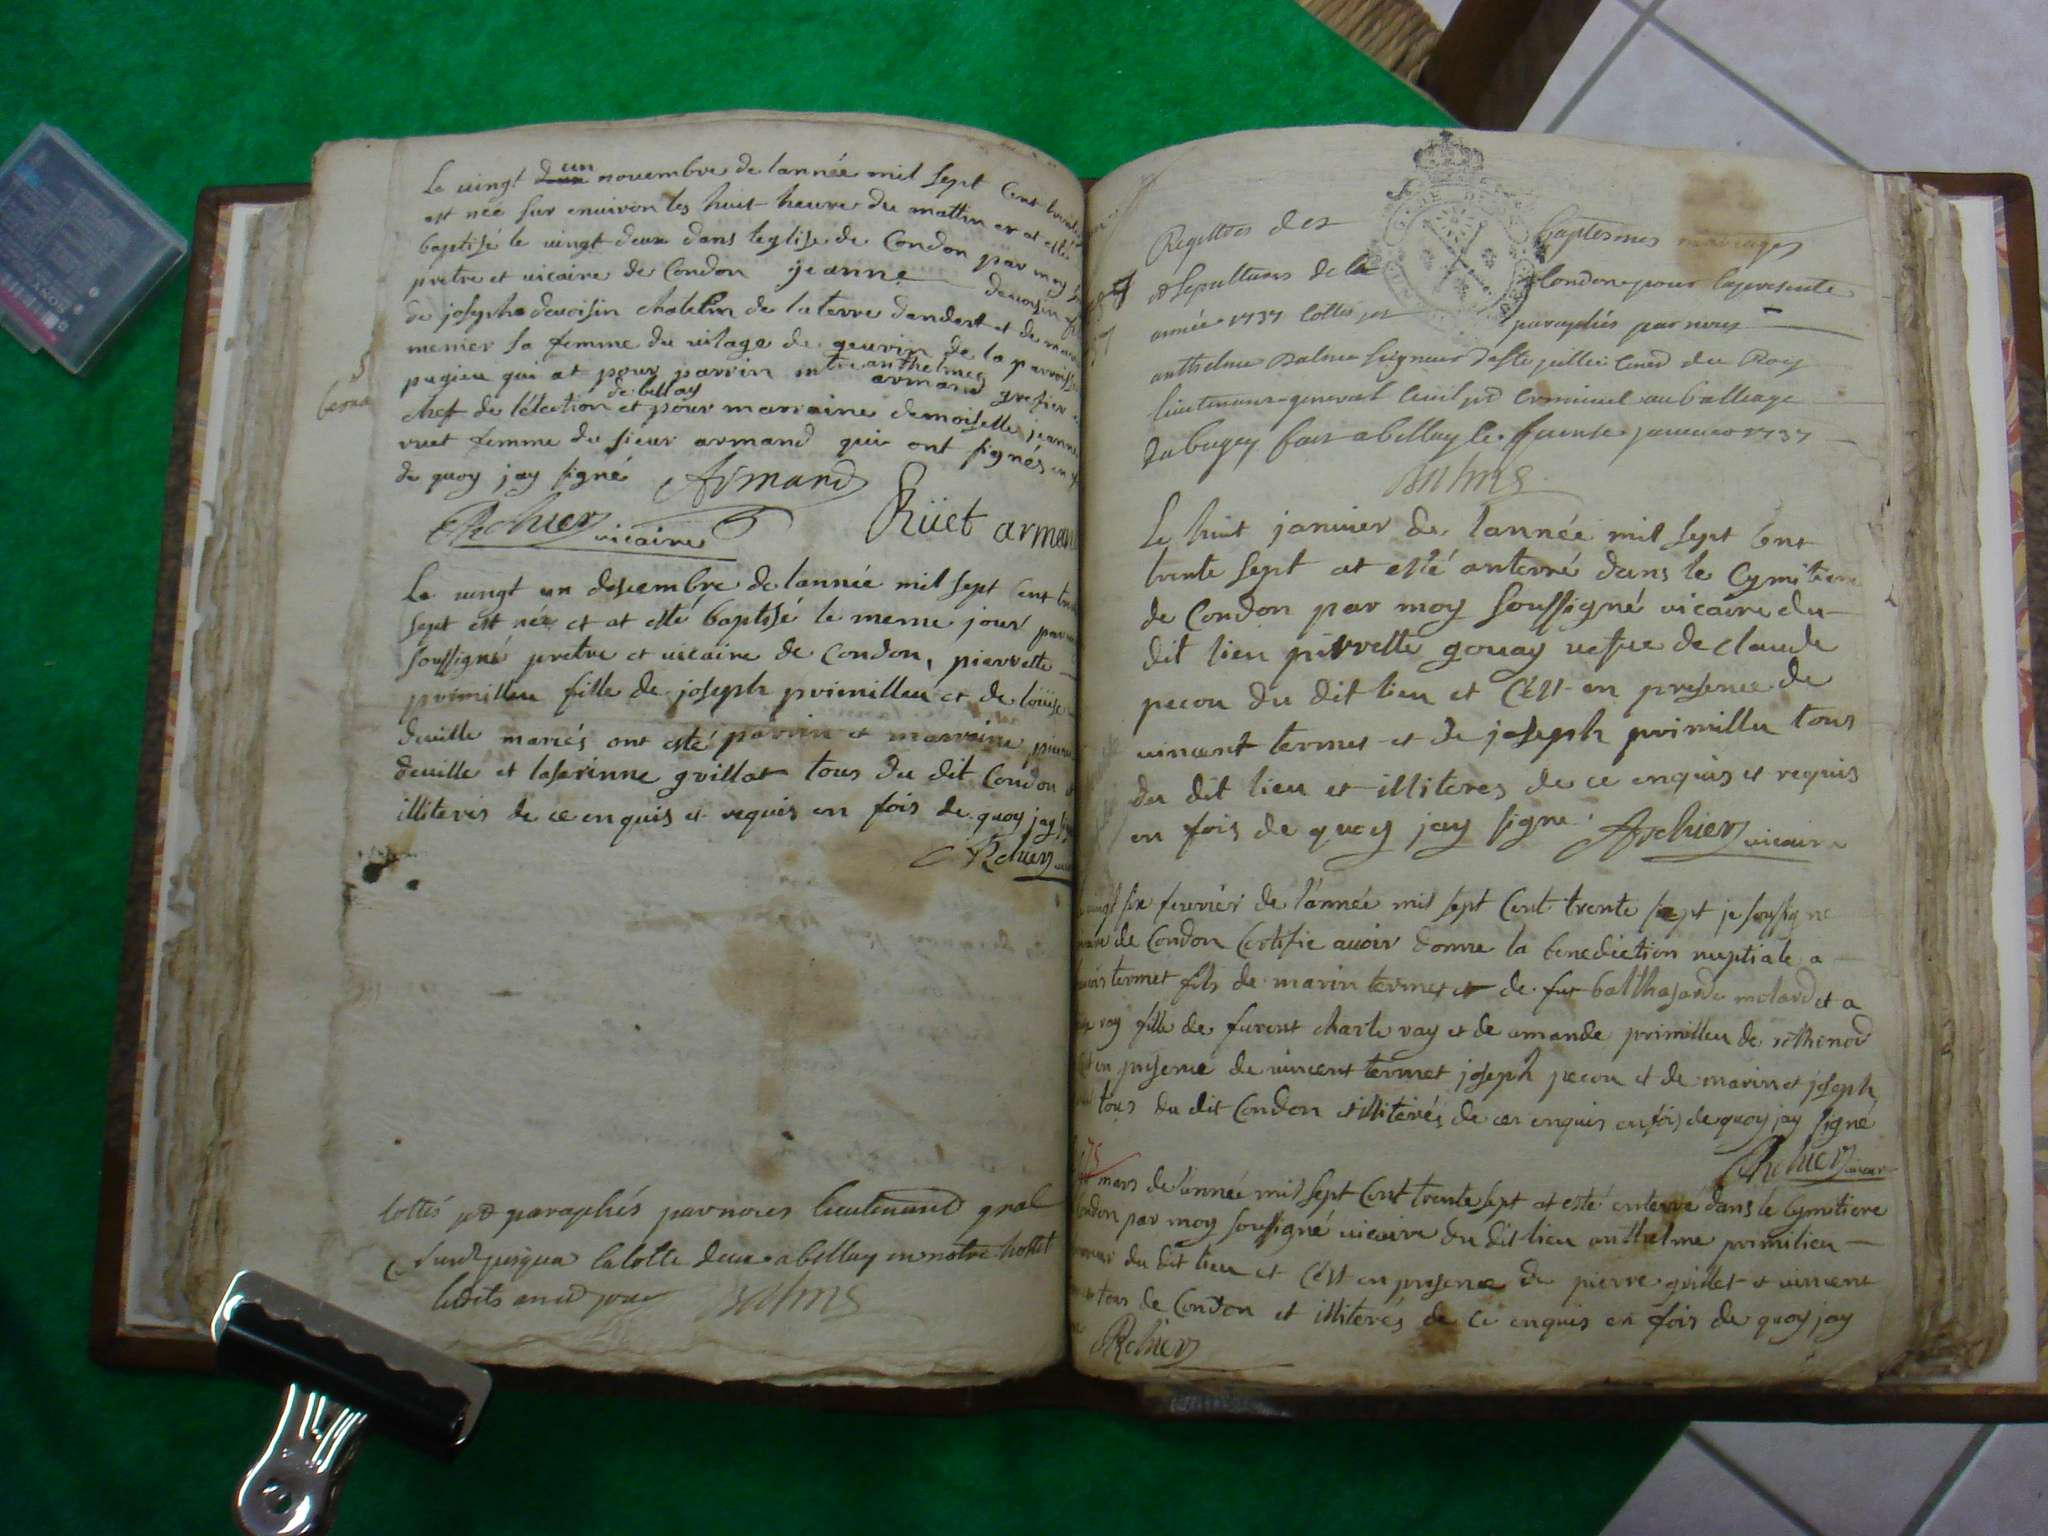 Le vingt un novembre de lannée mil sept Cent
est née sur environ les huit heure du mattin et at esté
baptisé le vingt deux dans leglise de Condon par moy
pretre et vicaire de Condon jeanne devoisin
de joseph devoisin chatelin de la terre dandert et de
menier sa femme du vilage de gevrin de la parroisse
pugieu qui at pour parrin anthelme
armand grefier
chef de lélection de bellay et pour marraine demoiselle jeanne
ruet femme du sieur armand qui ont signés en
de quoy jay signé Armand
Rochier vicaire Rüet arman
Le vingt un descembre de lannée mil sept Cent
sept est née et at esté baptisé le meme jour par
soussigné pretre et vicaire de Condon, pierrette
primilleu fille de joseph primilleu et de loüise
deville mariés ont esté parrin et marraine
deville et grillat tous du dit Condon
illiterés de ce enquis et requis en fois de quoy jay
Rchier
Cottés et paraphés par nous lieutenant gnal
jusqua la cotte deux a bellay en notre hottel
lesdits an et jour
Registres des baptesmes mariages
et sepultures de la Condon pour la presente
année 1737 Cottés et paraphés par nous
anthelme seigneur du Roy
lieutenant general Civil et Criminel au balliage
du bugey fait a bellay le janvier 1737
Le huit janvier de lannée mil sept Cent
trente sept at esté anterré dans le Cymitiere
de Condon par moy soussigné vicaire du
dit lieu pierrette gouay vefve de claude
pecou du dit lieu et C'est en presence de
vincent termet et de joseph primilleu tous
du dit lieu et illiteres de ce enquis et requis
en fois de quoy jay signe. Archier vicaire
vingt six fevrier de l'année mil sept Cent trente sept je soussigne
de Condon Certifie avoir donne la benediction nuptiale a
termet fils de marin termet et de balthasarde molard et a
ray fille de charle ray et de amande primilleu de
en presence de vincent termet joseph pecou et de marin et joseph
tous du dit Condon illiterés de ce enquis en fois de quoy jay signé
Rchier
75
mars de lannée mil sept Cent trente sept at esté enterré dans le Cymitiere
Condon par moy soussigné vicaire du dit lieu anthelme primilieu
du dit lieu et C'est en presence de pierre grillet et vincent
tous de Condon et illiterés de Ce enquis en fois de quoy jay
Rchier